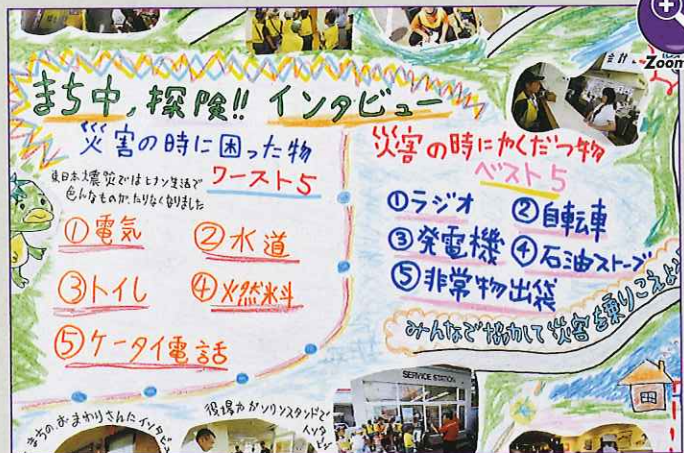 Zoom
会計
まち中,探険!! インタビュー
災害の時に困った物
東日本大震災では
色んなものが、たりなくなりました
ワースト5
①電気
②水道
③トイレ
④燃料
⑤ケータイ電話
災害の時にやくだつ物
ベスト5
①ラジオ
②自転車
③発電機
④石油ストーブ
⑤非常物出袋
みんなで協力して災害を乗りこえよ
SERVICE STATION
まちのおまわりさんにインタビュ
役場やガソリンスタンドで
インタビ